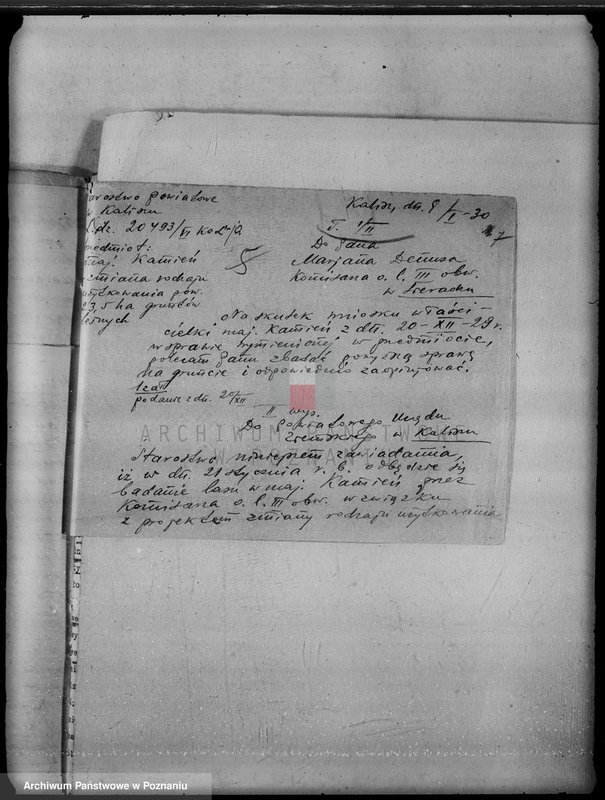 Starostwo Powiatowe
w Kaliszu
L.dz. 20493/VI Ko.L-/a
Przedmiot:
maj. Kamień
zmiana rodzaju
użytkowania pow.
23,5 ha gruntów
leśnych
Kalisz, dn. 9/I-30
7
I. 1/II
Do Pana
Marjana Demusa
Komisarza o. l. III obw.
w Sieradzu
Na skutek wniosku właści-
cielki maj. Kamień z dn. 20-XII-29 r.
w sprawie wymienionej w przedmiocie,
polecam Panu zbadać powyższą sprawę
na gruncie i odpowiednio zaopinjować.
1 zał
podanie z dn. 20/XII
II wyp.
Do Powiatowego Urzędu
Ziemskiego w Kaliszu
Starostwo niniejszem zawiadamia,
iż w dn. 21 stycznia r. b. odbędzie się
badanie lasu w maj. Kamień przez
Komisarza o. l. III obw. w związku
z projektem zmiany rodzaju użytkowania
ARCHIWUM PAŃSTWOWE
W POZNANIU
Archiwum Państwowe w Poznaniu